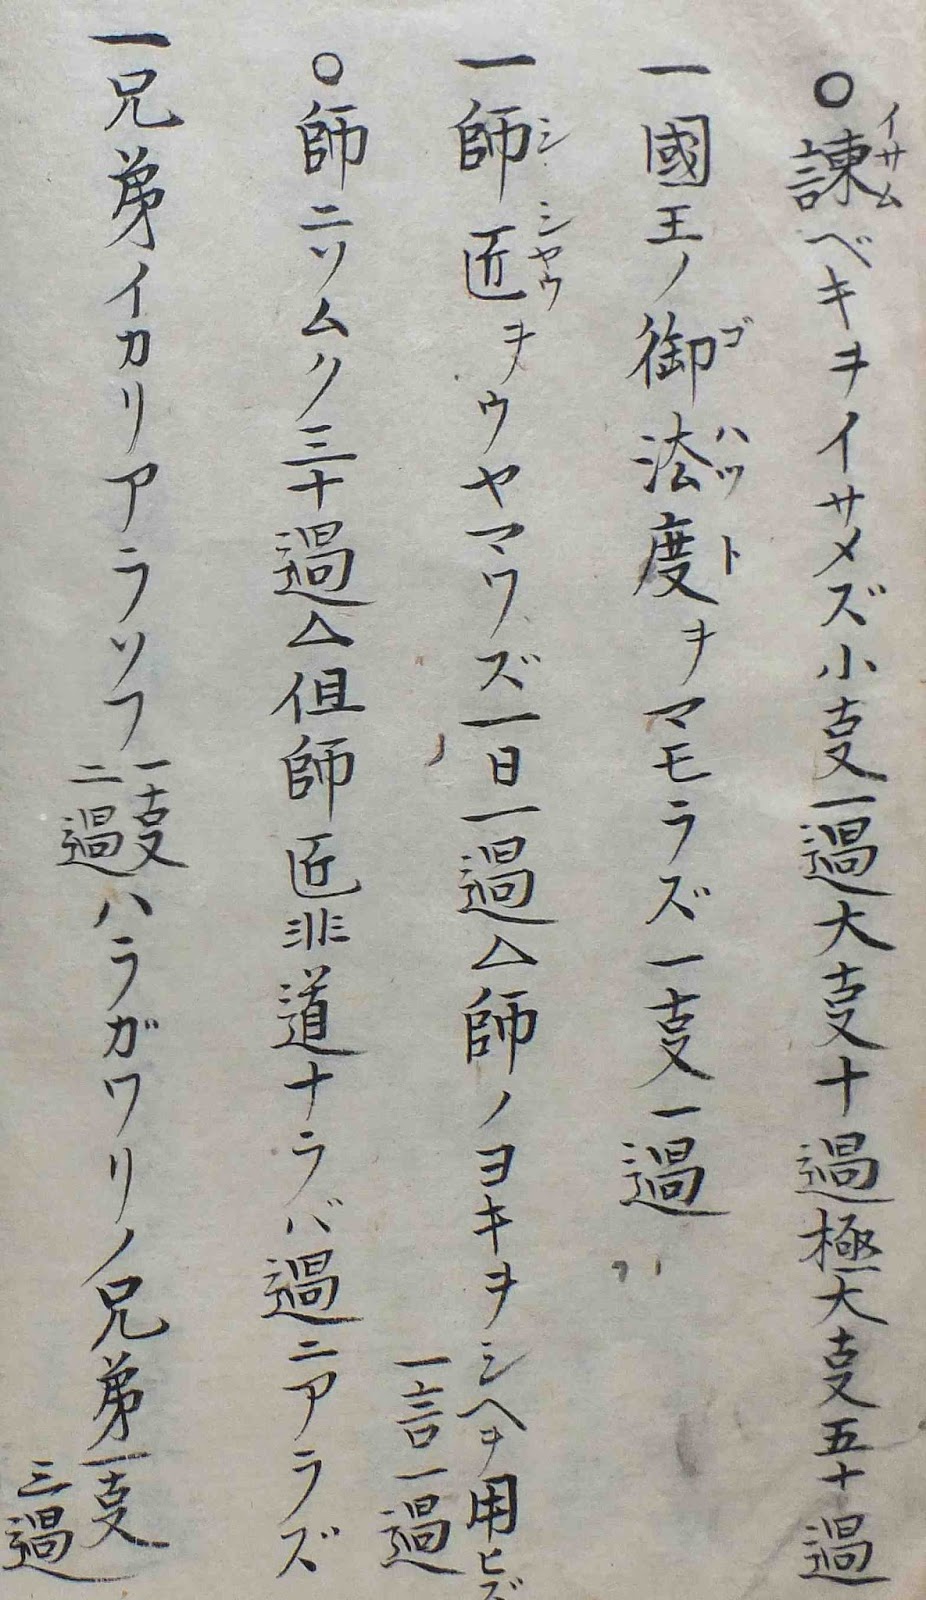 ○諫ベキヲイサメズ小叓一過大叓十過極大叓五十過
イサム
一國王ノ御法度ヲマモラズ一叓一過
ゴハツト
一師匠ヲウヤマワズ一日一過△師ノヨキヲシヘヲ用ヒズ一言一過
シシヤウ
○師ニソムク三十過△但師匠非道ナラバ過ニアラズ
一兄弟イカリアラソフ一叓二過ハラガワリノ兄弟一叓三過